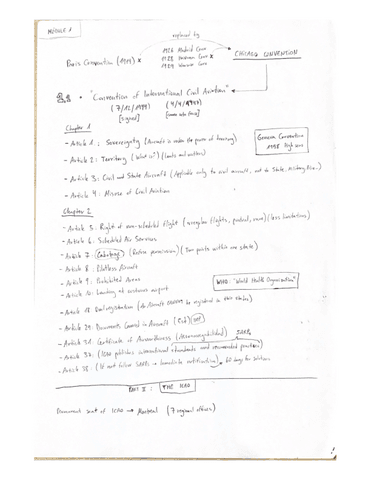 MODULE 1
replaced by
1926 Madrid Conv
1928 Havana Conv x
1929 Warsaw Conv
Paris Convention (1919) x
CHICAGO CONVENTION
"Convention of International Civil Aviation"
(7/12/1944) (4/4/1947)
[signed]
Chapter 1
Geneva Convention
1958 High seas
- Article 1: Sovereignty (Aircraft is under the power of territory)
- Article 2: Territory (What is?) (lands and waters)
- Article 3: Civil and State Aircraft (Applicable only to civil aircraft, not to State, military, Police.)
- Article 4: Misuse of Civil Aviation
Chapter 2
- Article 5: Right of non-scheduled flight (irregular flights, ) (less limitations)
- Article 6: Scheduled Air Services
- Article 7: Cabotage (Refuse permission) (Two points within one state)
- Article 8: Pilotless Aircraft
- Article 9: Prohibited Areas
- Article 10: Landing at customs airport
WHO: "World Health Organisation"
- Article 18: Dual registration (An Aircraft cannot be registered in two states)
- Article 29: Documents Carried in Aircraft
- Article 31: Certificate of Airworthiness (Aeronavegabilidad)
SARPs
- Article 37: (ICAO publishes international standards and recommended practices)
- Article 38: (If not follow SARPs → Immediate notification) 60 days for
PART II: THE ICAO
Permanent seat of ICAO → Montreal (7 regional offices)